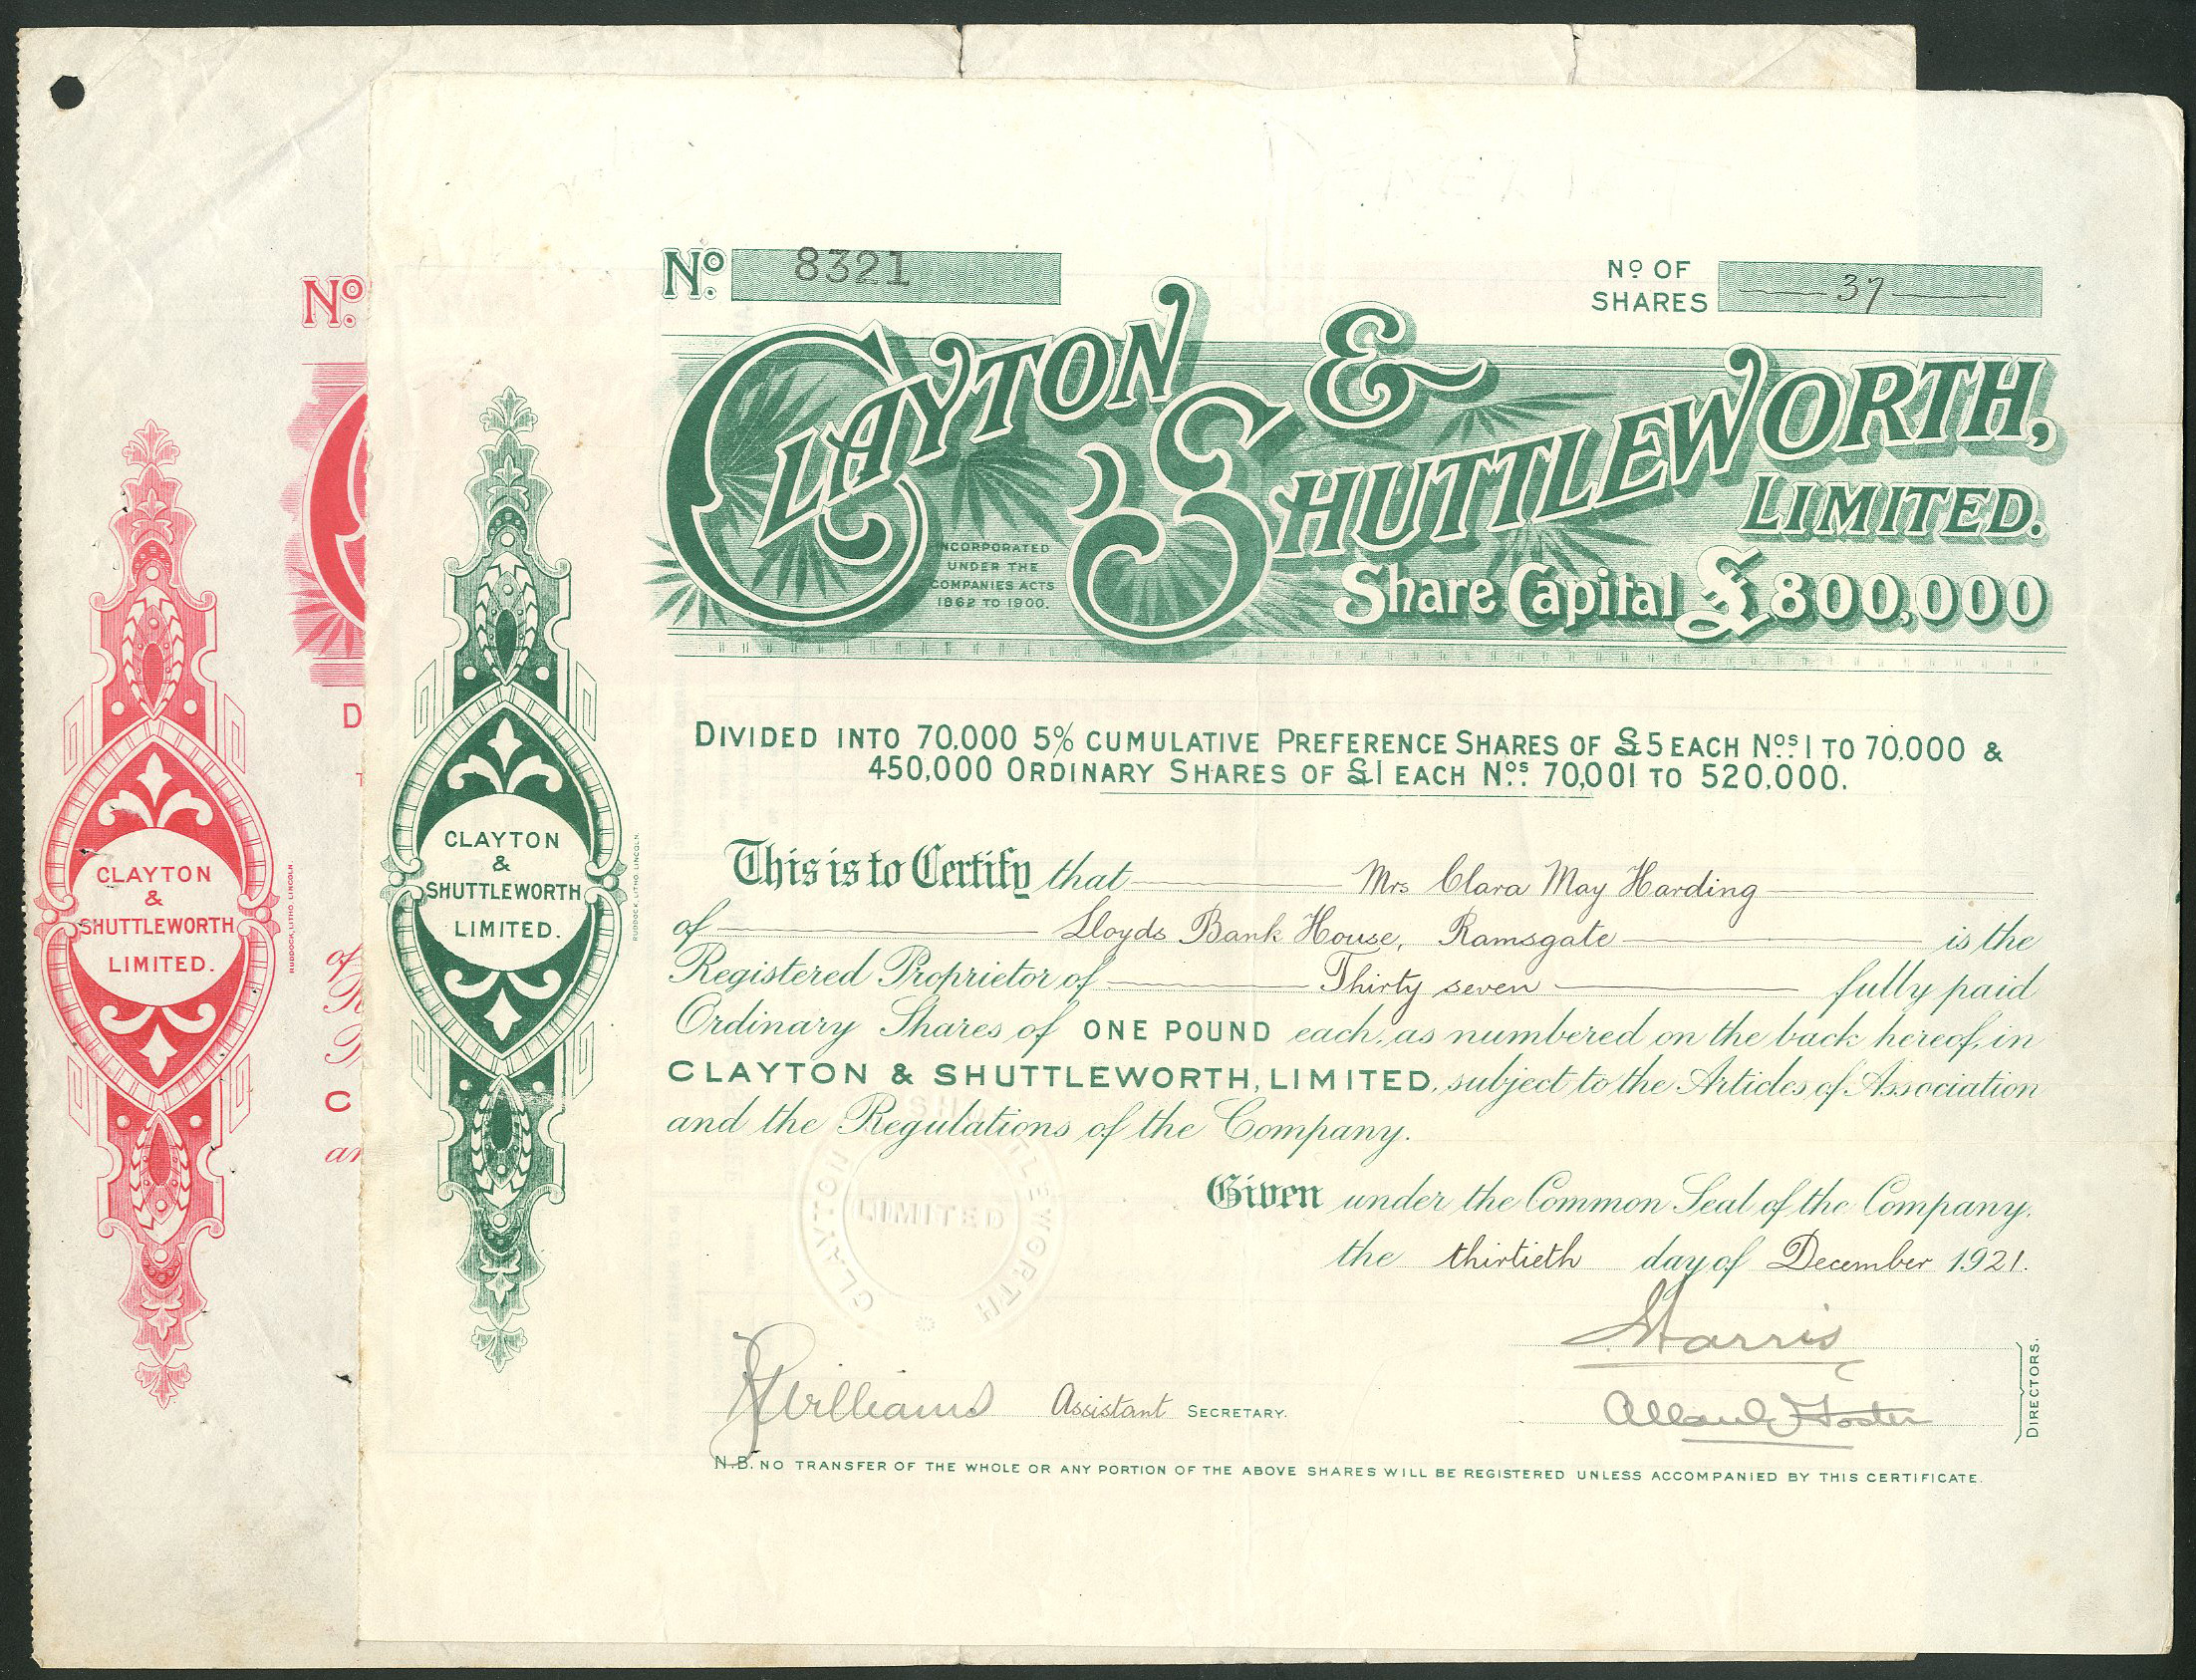 No.
CLAYTON
&
SHUTTLEWORTH
LIMITED.
RUDDOCK, LITHO, LINCOLN.
D
T
of
R
C
an
No. 8321
No OF SHARES 37
CLAYTON & SHUTTLEWORTH,
LIMITED.
INCORPORATED
UNDER THE
COMPANIES ACTS
1862 TO 1900.
Share Capital £800,000
DIVIDED INTO 70,000 5% CUMULATIVE PREFERENCE SHARES OF £5 EACH Nos. 1 TO 70,000 &
450,000 ORDINARY SHARES OF £1 EACH Nos. 70,001 TO 520,000.
CLAYTON
&
SHUTTLEWORTH
LIMITED.
RUDDOCK, LITHO, LINCOLN.
This is to Certify that Mrs Clara May Harding
of Lloyds Bank House, Ramsgate is the
Registered Proprietor of Thirty seven fully paid
Ordinary Shares of ONE POUND each, as numbered on the back hereof, in
CLAYTON & SHUTTLEWORTH, LIMITED, subject to the Articles of Association
and the Regulations of the Company.
Given under the Common Seal of the Company,
the thirtieth day of December 1921.
CLAYTON SHUTTLEWORTH
LIMITED
Harris
Williams Assistant SECRETARY.
DIRECTORS.
N.B. NO TRANSFER OF THE WHOLE OR ANY PORTION OF THE ABOVE SHARES WILL BE REGISTERED UNLESS ACCOMPANIED BY THIS CERTIFICATE.